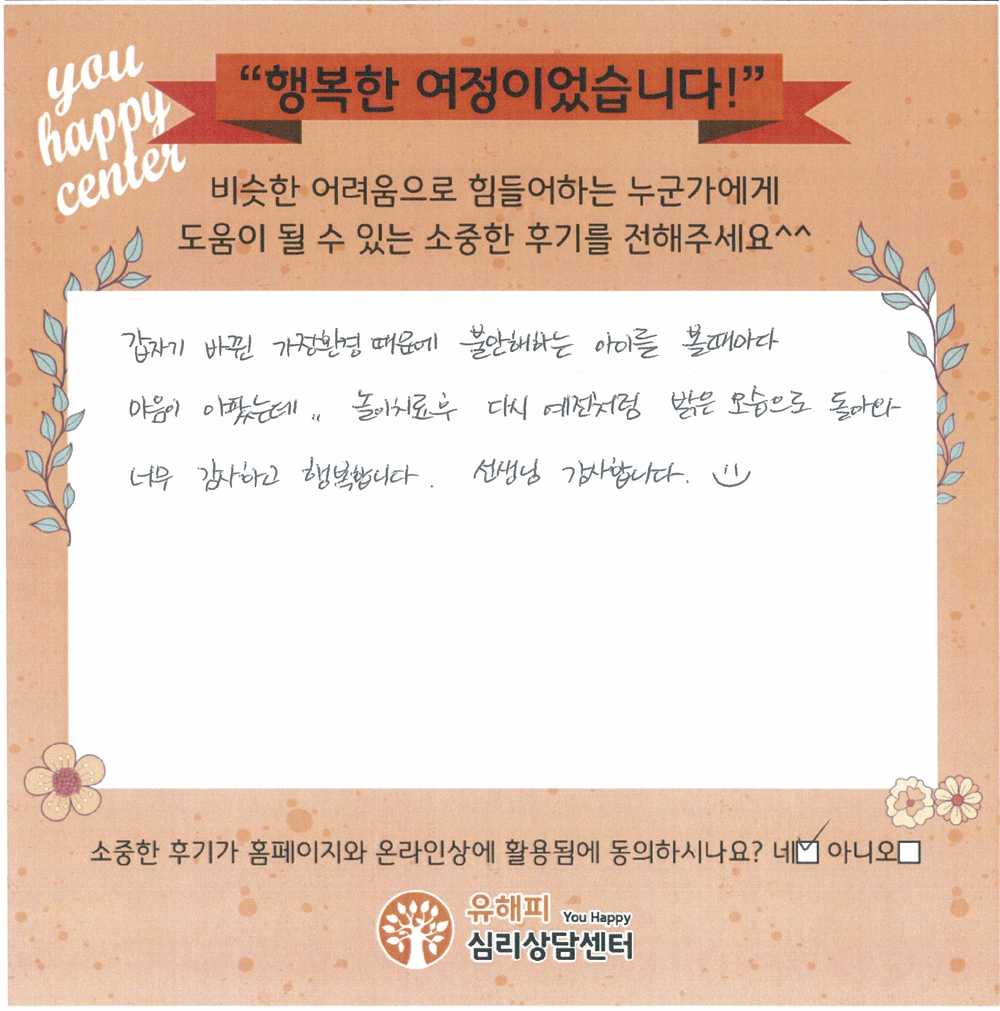 you
happy
center
“행복한 여정이었습니다!”
비슷한 어려움으로 힘들어하는 누군가에게
도움이 될 수 있는 소중한 후기를 전해주세요^^
갑자기 바뀐 가정환경 때문에 불안해하는 아이를 볼때마다
마음이 아팠는데 .. 놀이치료후 다시 예전처럼 밝은 모습으로 돌아와
너무 감사하고 행복합니다. 선생님 감사합니다.
소중한 후기가 홈페이지와 온라인상에 활용됨에 동의하시나요? 네☑ 아니오☐
유해피 You Happy
심리상담센터